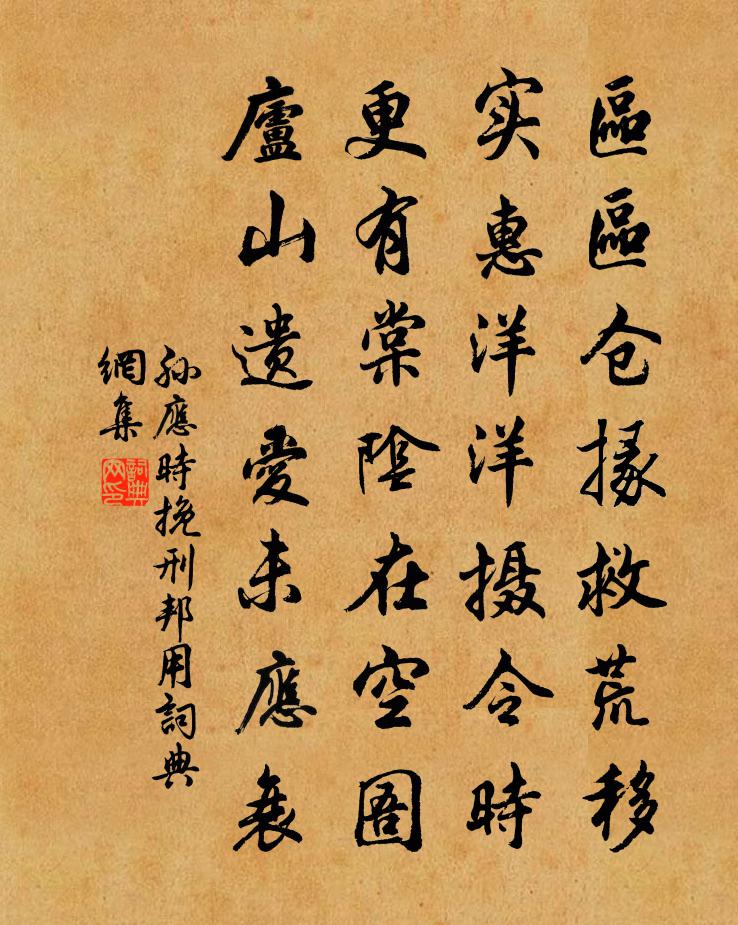 區區仓掾救荒移
实惠洋洋摄令時
更有棠陰在空圄
廬山遗愛未應衰
孙應時挽刑邦用詞典
網集
詞典
网印